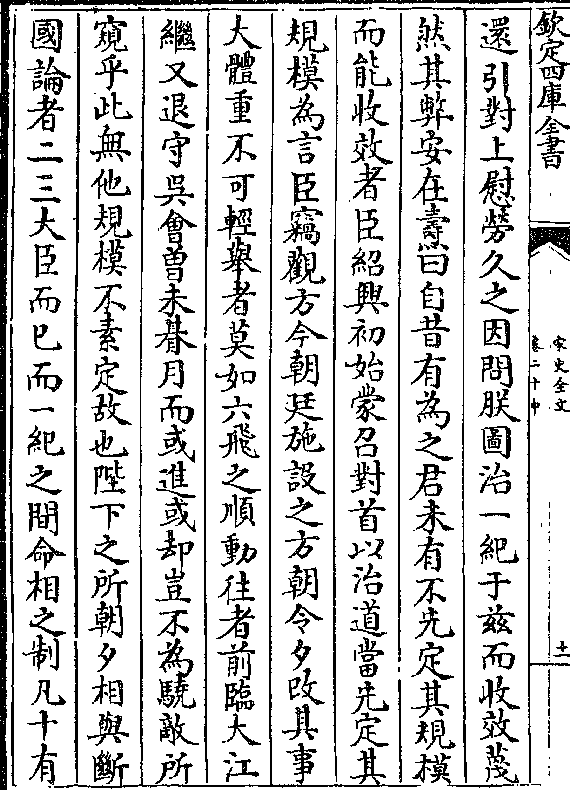 欽定四庫全書
宋史全文
卷二十中
十一
還引對上慰勞久之因問朕圖治一紀于兹而收效蔑
然其弊安在燾曰自昔有為之君未有不先定其規模
而能收效者臣紹興初始蒙召對首以治道當先定其
規模為言臣竊觀方今朝廷施設之方朝令夕改其事
大體重不可輕舉者莫如六飛之順動往者前臨大江
繼又退守吳會曽未朞月而或進或却豈不為驍敵所
窺乎此無他規模不素定故也陛下之所朝夕相與斷
國論者二三大臣而已而一紀之間命相之制凡十有